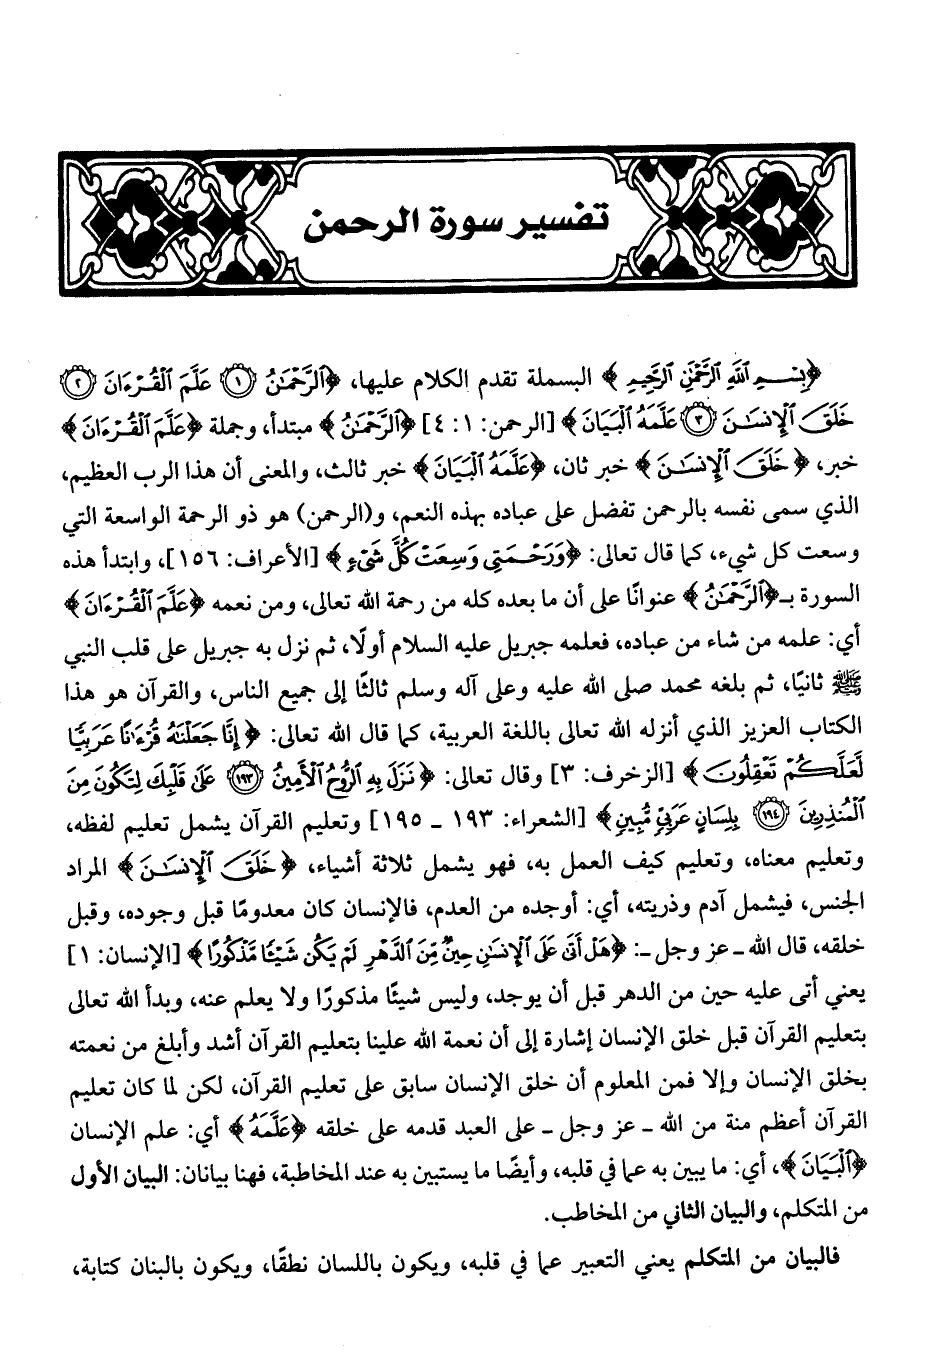 تفسير سورة الرحمن
﴿بِسْمِ ٱللَّهِ ٱلرَّحْمَٰنِ ٱلرَّحِيمِ﴾ البسملة تقدم الكلام عليها، ﴿ٱلرَّحْمَٰنُ ١ عَلَّمَ ٱلْقُرْءَانَ ٢
خَلَقَ ٱلْإِنسَٰنَ ٣ عَلَّمَهُ ٱلْبَيَانَ﴾ [الرحمن: ١: ٤] ﴿ٱلرَّحْمَٰنُ﴾ مبتدأ، وجملة ﴿عَلَّمَ ٱلْقُرْءَانَ﴾
خبر، ﴿خَلَقَ ٱلْإِنسَٰنَ﴾ خبر ثان، ﴿عَلَّمَهُ ٱلْبَيَانَ﴾ خبر ثالث، والمعنى أن هذا الرب العظيم،
الذي سمى نفسه بالرحمن تفضل على عباده بهذه النعم، و(الرحمن) هو ذو الرحمة الواسعة التي
وسعت كل شيء، كما قال تعالى: ﴿وَرَحْمَتِى وَسِعَتْ كُلَّ شَىْءٍ﴾ [الأعراف: ١٥٦]، وابتدأ هذه
السورة بـ﴿ٱلرَّحْمَٰنُ﴾ عنوانًا على أن ما بعده كله من رحمة الله تعالى، ومن نعمه ﴿عَلَّمَ ٱلْقُرْءَانَ﴾
أي: علمه من شاء من عباده، فعلمه جبريل عليه السلام أولًا، ثم نزل به جبريل على قلب النبي
ﷺ ثانيًا، ثم بلغه محمد صلى الله عليه وعلى آله وسلم ثالثًا إلى جميع الناس، والقرآن هو هذا
الكتاب العزيز الذي أنزله الله تعالى باللغة العربية، كما قال الله تعالى: ﴿إِنَّا جَعَلْنَٰهُ قُرْءَٰنًا عَرَبِيًّا
لَّعَلَّكُمْ تَعْقِلُونَ﴾ [الزخرف: ٣] وقال تعالى: ﴿نَزَلَ بِهِ ٱلرُّوحُ ٱلْأَمِينُ ١٩٣ عَلَىٰ قَلْبِكَ لِتَكُونَ مِنَ
ٱلْمُنذِرِينَ ١٩٤ بِلِسَانٍ عَرَبِىٍّ مُّبِينٍ﴾ [الشعراء: ١٩٣ ـ ١٩٥] وتعليم القرآن يشمل تعليم لفظه،
وتعليم معناه، وتعليم كيف العمل به، فهو يشمل ثلاثة أشياء، ﴿خَلَقَ ٱلْإِنسَٰنَ﴾ المراد
الجنس، فيشمل آدم وذريته، أي: أوجده من العدم، فالإنسان كان معدومًا قبل وجوده، وقبل
خلقه، قال الله ـ عز وجل ـ: ﴿هَلْ أَتَىٰ عَلَى ٱلْإِنسَٰنِ حِينٌ مِّنَ ٱلدَّهْرِ لَمْ يَكُن شَيْـًٔا مَّذْكُورًا﴾ [الإنسان: ١]
يعني أتى عليه حين من الدهر قبل أن يوجد، وليس شيئًا مذكورًا ولا يعلم عنه، وبدأ الله تعالى
بتعليم القرآن قبل خلق الإنسان إشارة إلى أن نعمة الله علينا بتعليم القرآن أشد وأبلغ من نعمته
بخلق الإنسان وإلا فمن المعلوم أن خلق الإنسان سابق على تعليم القرآن، لكن لما كان تعليم
القرآن أعظم منة من الله ـ عز وجل ـ على العبد قدمه على خلقه ﴿عَلَّمَهُ﴾ أي: علم الإنسان
﴿ٱلْبَيَانَ﴾، أي: ما يبين به عما في قلبه، وأيضًا ما يستبين به عند المخاطبة، فهنا بيانان: البيان الأول
من المتكلم، والبيان الثاني من المخاطب.
فالبيان من المتكلم يعني التعبير عما في قلبه، ويكون باللسان نطقًا، ويكون بالبنان كتابة،